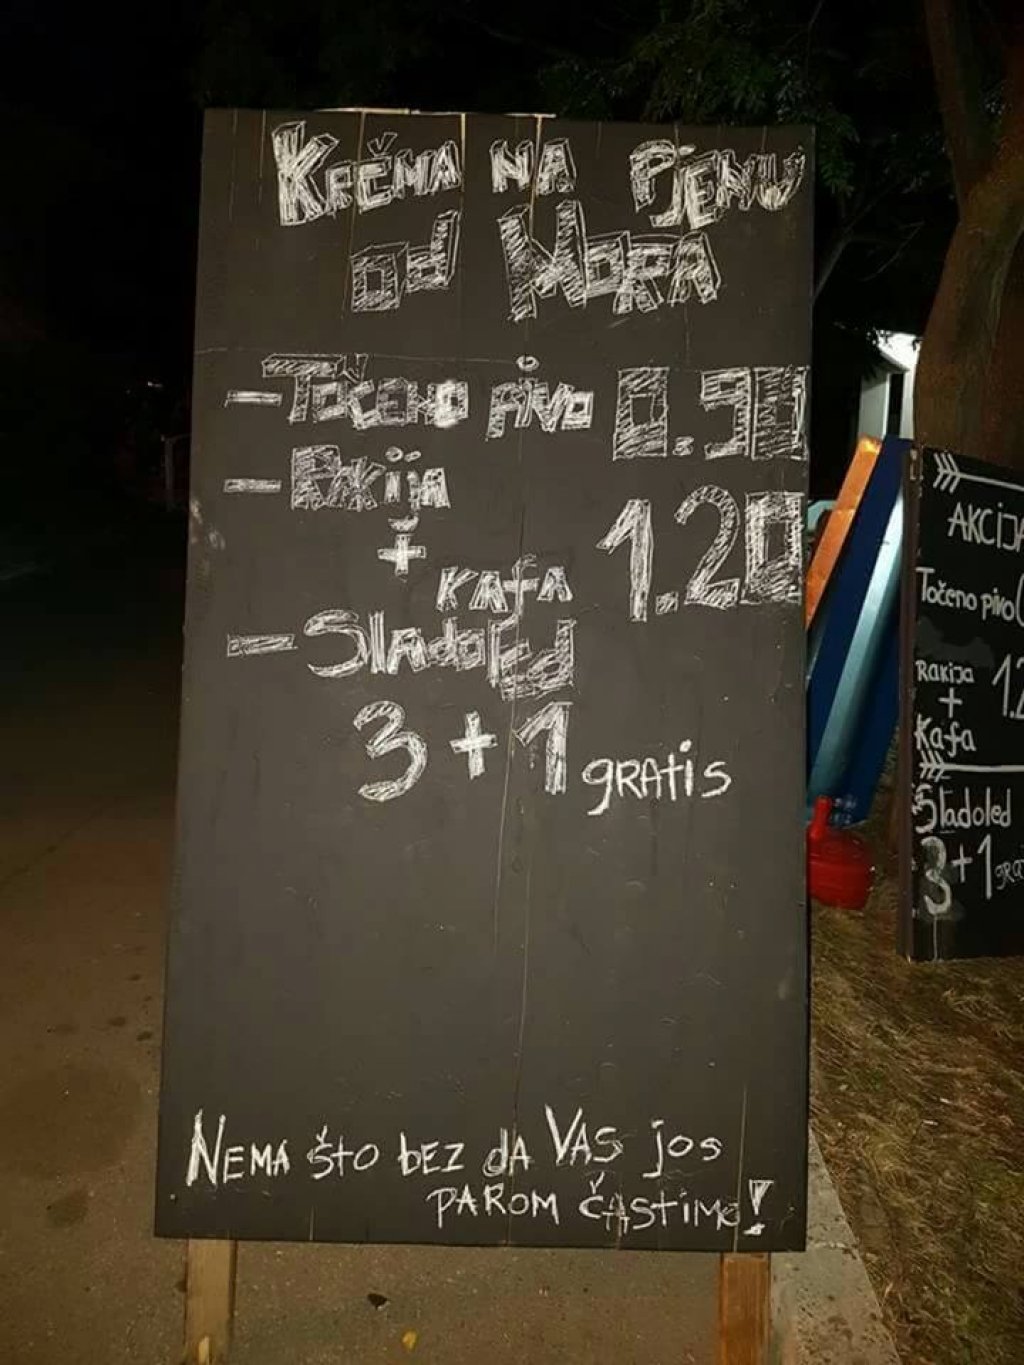 Krčma na Pjenu
od Mora
- Točeno pivo 0.90
- Rakija
+
Kafa 1.20
- Sladoled
3+1 gratis
Nema što bez da Vas jos
parom častimo!
AKCIJA
Točeno pivo
Rakija
+
Kafa
Sladoled
3+1